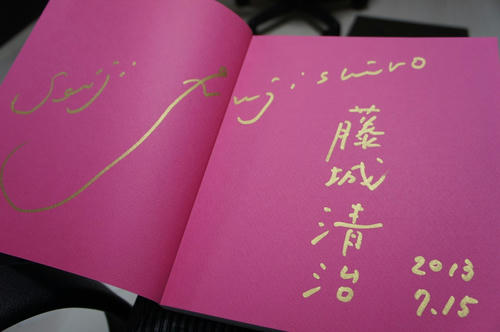 Seiji Fujishiro
藤城
清治
2013
7.15